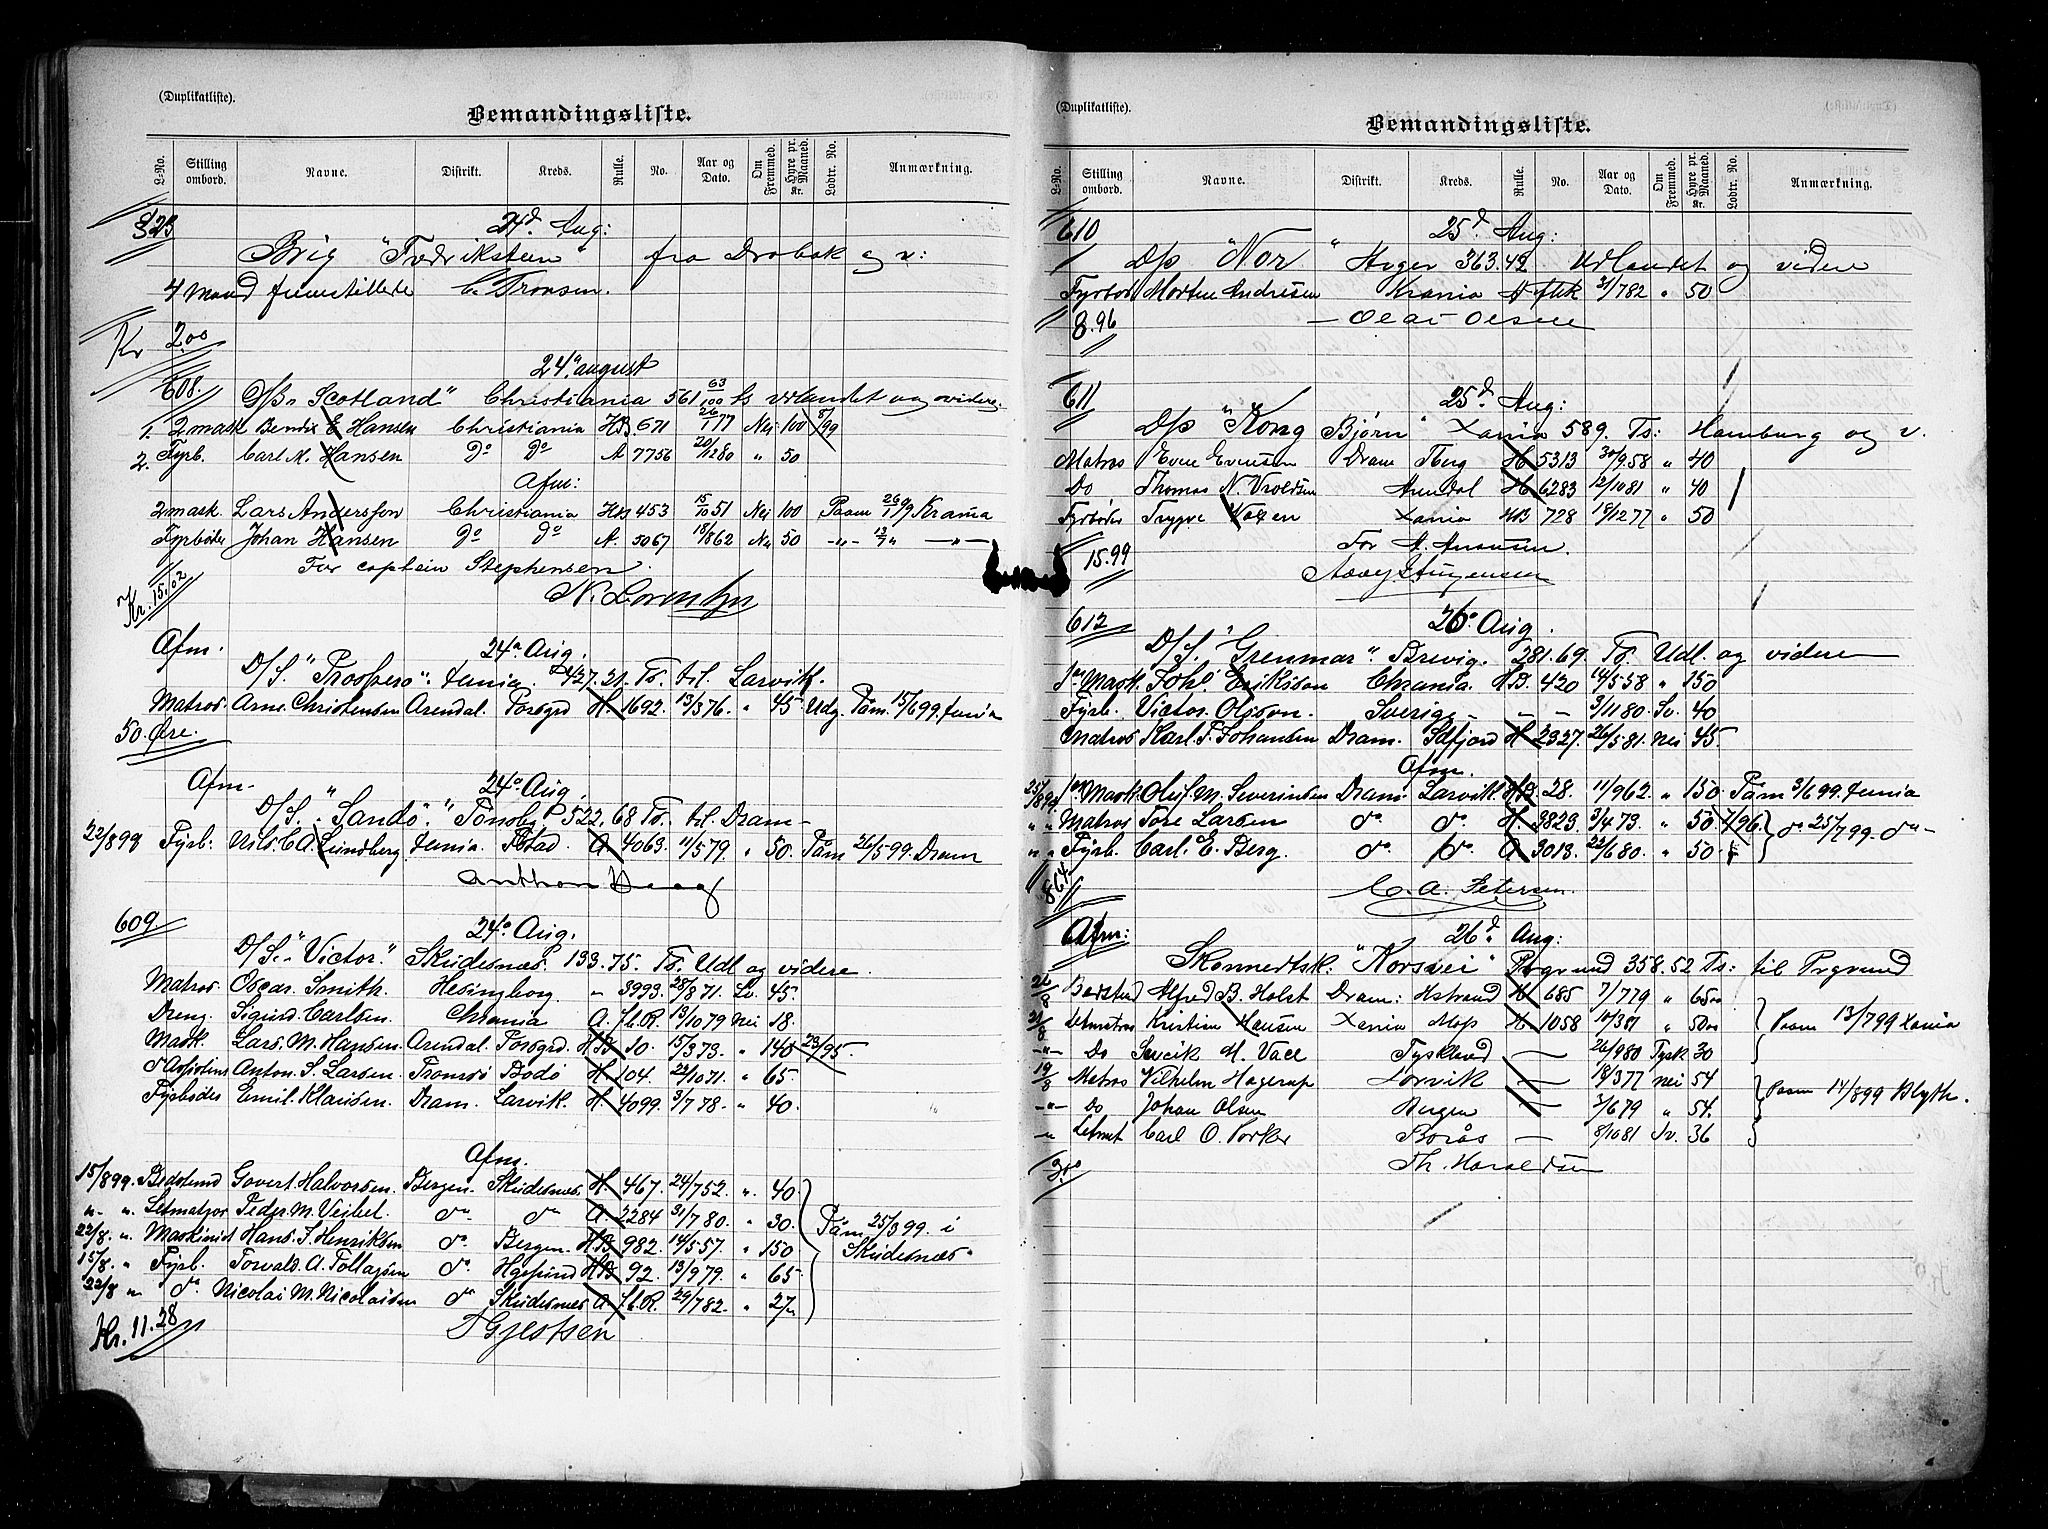 (Duplikatliste).
Bemandingsliste.
L-No. Stilling ombord. Navne. Distrikt. Kreds. Rulle. No. Aar og Dato. Om Fremmed. Hyre pr. Maaned. Kr. Lodtr. No. Anmærkning.
24d Aug:
Brig "Fredriksteen" fra Drøbak og v:
4 Mand C. Tronsen.
Kr 2.00
24. august
608. D/S "Scotland" Christiania 561 63/100 ts Udlandet og videre
1. 2 mask Bendix E Hansen Christiania HB. 671 26/1 77 Nei 100 8/99
2. Fyrb. Carl M. Hansen do do A 7756 20/1280 " 50
Afm:
2 mask. Lars Andersson Christiania HB 453 15/10 51 Nei 100 Paam 26/1 99 Krania
Fyrbøder Johan Hansen do do A. 5067 18/862 Nei 50 -"- 12/7 " -"-
For captein Stephensen
Kr. 15.02
N. Lorentzen
Afm. 24de Aug.
D/S. "Prospero". Xania. 427.21. To. til Larvik.
Matros. Arne Christensen Arendal. Porsgrd H. 1692. 13/376. " 45 Udg. Påm. 15/699. Xania
50. Øre.
Afm. 24de Aug.
D/S. "Sandö." Tönsbg. 522,68 To. til Dram-
22/899 Fyrb: Nils C A. Lundberg. Xania. Fstad. A. 4063. 11/579. " 50. Påm 26/599. Dram
Anthon Haag
609 24de Aug.
D/S. "Victor." Skudesnæs. 133.75. To. Udl og videre.
Matros. Oscar Smith. Helsingborg. " 3993. 28/871. Sv. 45.
Dreng. Sigurd Carlsen. Chrania A. fl.R. 13/1079 Nei 18.
Mask. Lars. M. Hansen Arendal. Porsgrd. HB 10. 15/373. " 140 23/95.
Assistens Anton. S. Larsen. Tromsö Bodö H. 104. 22/1071. " 65.
Fyrbøder Emil. Klausen. Dram. Larvik. H. 4099. 3/778. " 40.
Afm.
15/899. Bedstmd Govert Halvorsen. Bergen. Skudesnæs. H. 467. 24/752. " 40
" " Letmatros Peder M. Veibel. do do A. 2284 31/780. " 30. Påm. 25/399. i
22/8. " Maskinist Hans. J. Henriksen do. Bergen. HB 982. 14/557. " 150 Skudesnæs.
15/8. " Fyrb. Torvald. A. Tollagsen do. Hgesund HB 92. 13/979. " 65
22/8 " do Nicolai M. Nicolaisen do Skudesnæs. A. fl.R. 29/782. " 27
Kr. 11.28
Gjestsen
(Duplikatliste).
Bemandingsliste.
L-No. Stilling ombord. Navne. Distrikt. Kreds. Rulle. No. Aar og Dato. Om Fremmed. Hyre pr. Maaned. Kr. Lodtr. No. Anmærkning.
610 25d Aug:
D/p "Nor" 363.42 Udlandet og videre
Fyrbød Morten Andresen Krania A 31/782 " 50
8.96 Olai Olsen
611 25d. Aug:
D/p "Kong Bjørn" Xania 589. Ts: Hamburg og v.
Matros Even Evensen Dram Tberg H 5313 30/958 " 40
Do Thomas N. Uvoldsen Arendal H 6283 12/1081 " 40
Fyrbøder Trygve Woxen Xania HB 728 18/1277 " 50
For A. Amonsen.
15.99
Aasey Jürgensen
612 26de Aug.
D/S. "Grenmar". Brevig. 281.69. To. Udl. og videre
1ste Mask. Joh. Erikson Chrania. HB. 420 14/558 " 150
Fyrb. Victor. Olsson. Sverige - - - 3/1180. Sv. 40
Matros Karl. F. Johansen Dram. Sdfjord H. 2327. 26/581. Nei 45.
Afm.
25/899 1ste Mask. Oluf. M. Severinsen Dram. Larvik. HB. 28. 11/962. " 150. Påm 3/699. Xania
" " Matros Tore Larsen do do. H. 3823. 3/473. " 50. 7/96. do 25/799. do
" " Fyrb. Carl. E. Berg. do. do. A 3013. 22/680. " 50.
8.64 C. A. Petersen.
Afm: 26d. Aug:
Skonnertsk: "Korsvei" Prgrund 358.52 Ts: til Prgrund
26/8 Bedstmd Alfred B. Holst Dram: Hstrand H 685 7/779 " 65.00
21/8 Letmatros Kristian Hansen Xania Mop H. 1058 10/381 " 50.00 Paam 13/799 Xania
-"- Do M. Vall Tyskland - 26/980 Tysk 30
19/8 Matros Vilhelm Hagerup Larvik - 18/377 Nei 54 Paam 14/899 Blyth.
-"- Do Johan Olsen Bergen - 3/679 " 54.
" Letmat Carl O. Porker Borås - 8/1081 Sv. 36
Th. Haraldsen